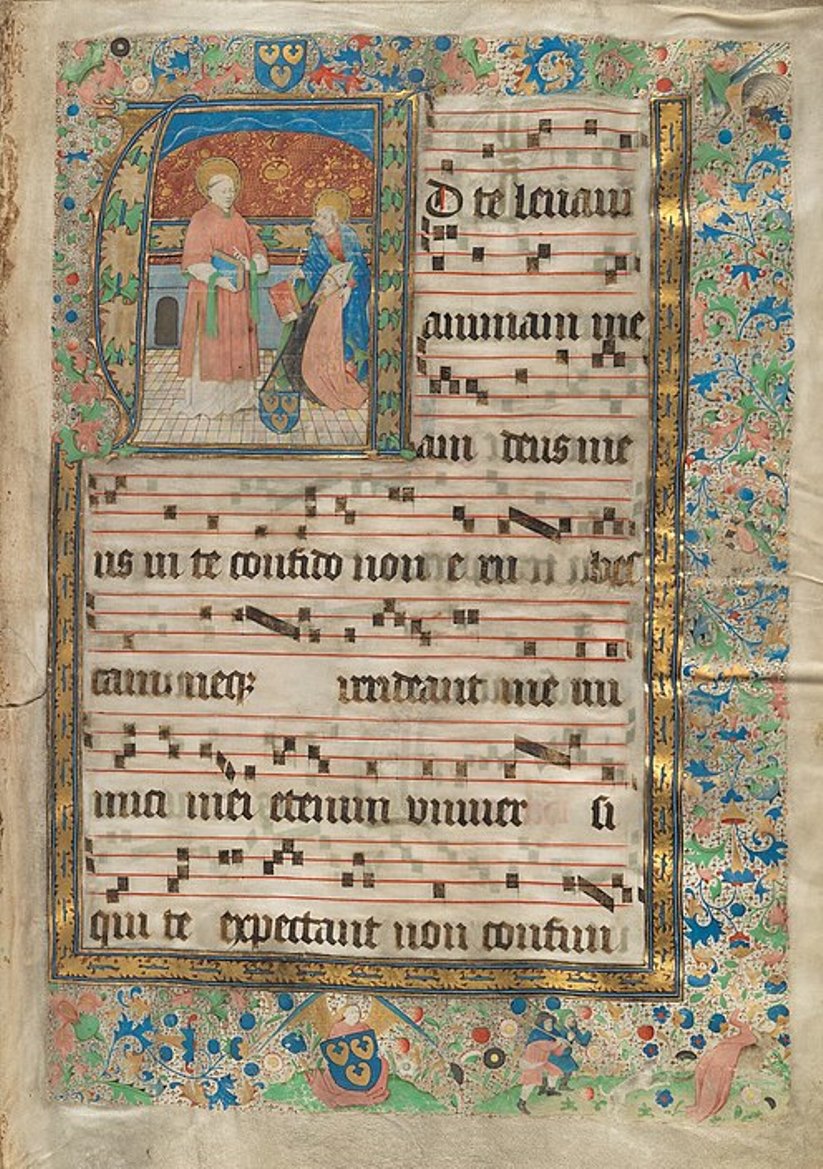 Ad te levavi
animam me
am deus me
us in te confido non e ru bes
cam neq3 irrideant me ini
mici mei etenim univer si
qui te expectant non confun